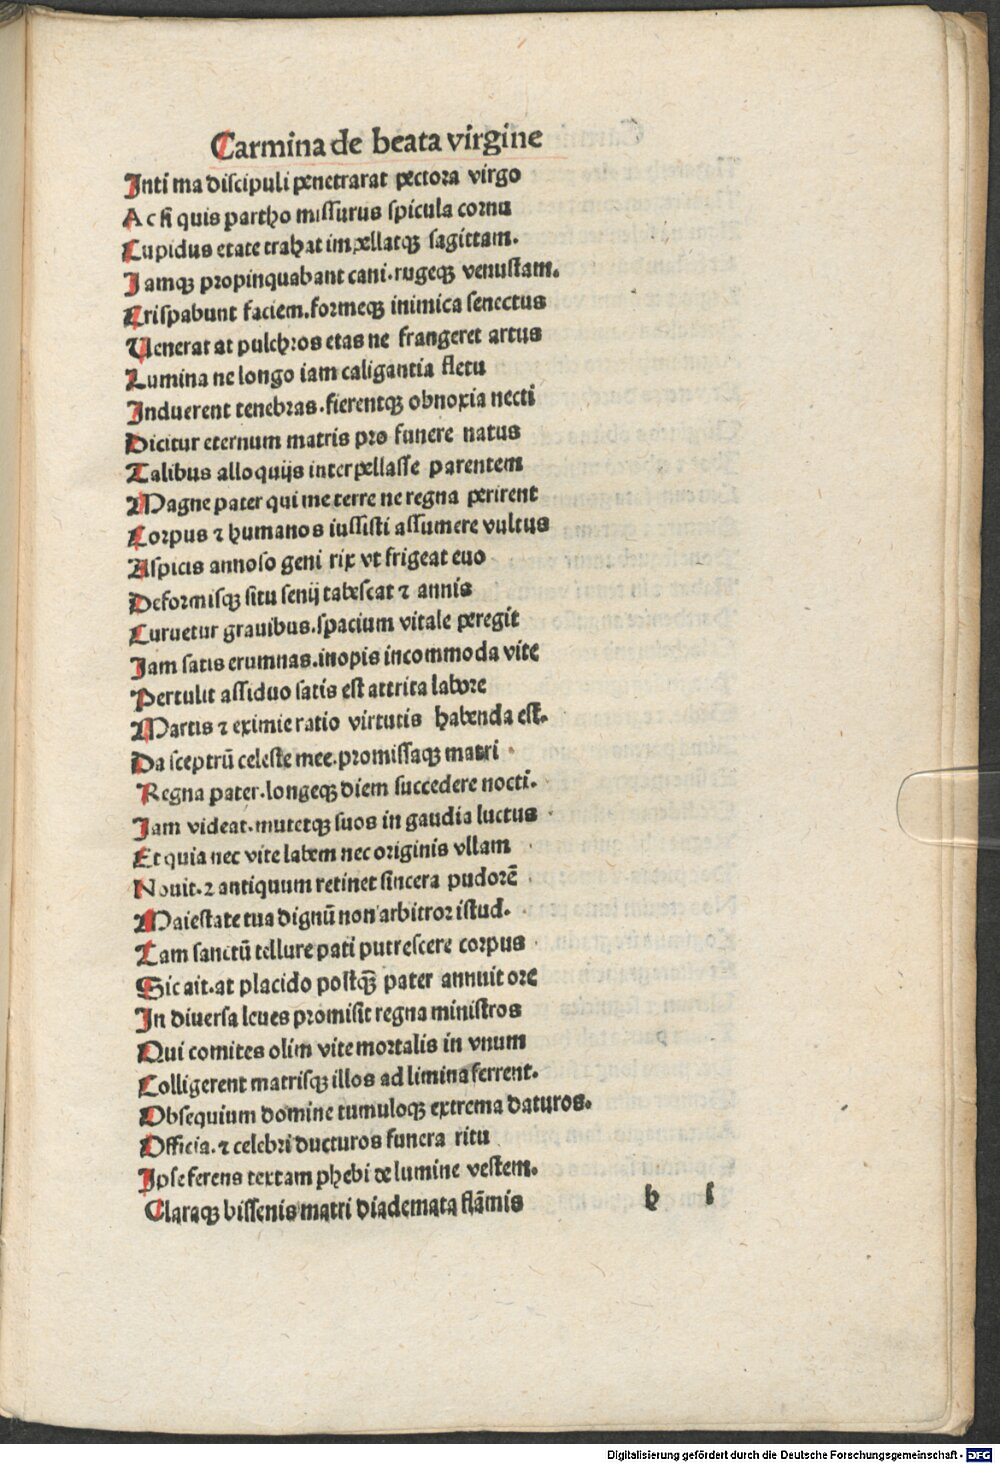 Carmina de beata virgine
Inti ma discipuli penetrarat pectora virgo
Ac si quis partho missurus spicula cornu
Cupidus etate trahat impellatqꝫ sagittam.
Iamqꝫ propinquabant cani.rugeqꝫ venustam.
Crispabunt faciem.formeqꝫ inimica senectus
Venerat at pulchros etas ne frangeret artus
Lumina ne longo iam caligantia fletu
Induerent tenebras.fierentqꝫ obnoxia necti
Dicitur eternum matris pro funere natus
Talibus alloquijs interpellasse parentem
Magne pater qui me terre ne regna perirent
Corpus ⁊ humanos iussisti assumere vultus
Aspicis annoso geni rix vt frigeat euo
Deformisqꝫ situ senij tabescat ⁊ annis
Curuetur grauibus.spacium vitale peregit
Iam satis erumnas.inopis incommoda vite
Pertulit assiduo satis est attrita labore
Martis ⁊ eximie ratio virtutis habenda est.
Da sceptrū celeste mee.promissaqꝫ matri
Regna pater.longeqꝫ diem succedere nocti.
Iam videat.mutetqꝫ suos in gaudia luctus
Et quia nec vite labem nec originis vllam
Nouit.⁊ antiquum retinet sincera pudorē
Maiestate tua dignū non arbitror istud.
Tam sanctū tellure pati putrescere corpus
Sic ait.at placido postqꝫ̄ pater annuit ore
In diuersa leues promisit regna ministros
Qui comites olim vite mortalis in vnum
Colligerent matrisqꝫ illos ad limina ferrent.
Obsequium domine tumuloqꝫ extrema daturos.
Officia.⁊ celebri ducturos funera ritu
Ipse ferens textam phebi de lumine vestem.
Claraqꝫ bissenis matri diademata flāmis
h l
Digitalisierung gefördert durch die Deutsche Forschungsgemeinschaft - DFG